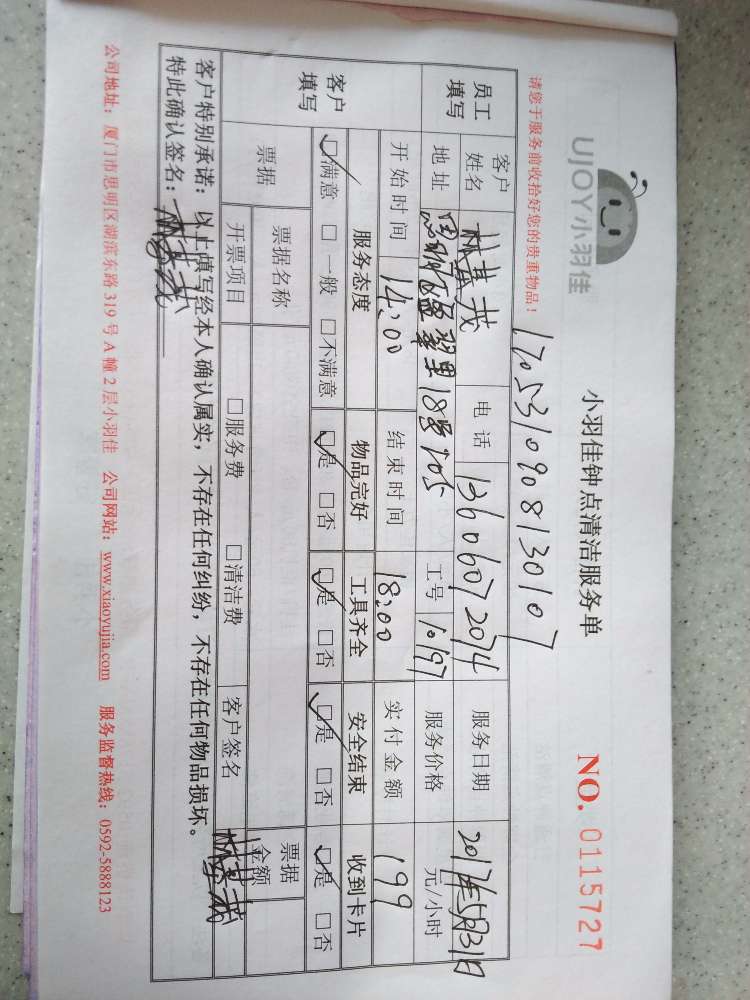 UJOY小羽佳
小羽佳钟点清洁服务单
NO. 0115727
请您于服务前收拾好您的贵重物品！
17053109081 30107
员工填写 客户姓名 林其茂 电话 13606072074 服务日期 2017年5月31日
地址 思明区 翠里18号705 工号 1097 服务价格 元/小时
开始时间 14:00 结束时间 18:00 实付金额 199
客户填写 服务态度 物品完好 工具齐全 安全结束 收到卡片
☑满意 □一般 □不满意 ☑是 □否 ☑是 □否 ☑是 □否 ☑是 □否
票据 票据名称 票据金额
开票项目 □服务费 □清洁费 客户签名 林其茂
客户特别承诺：以上填写经本人确认属实，不存在任何纠纷，不存在任何物品损坏。
特此确认签名：林其茂
公司地址：厦门市思明区湖滨东路319号A幢2层小羽佳 公司网站：www.xiaoyujia.com 服务监督热线：0592-5888123